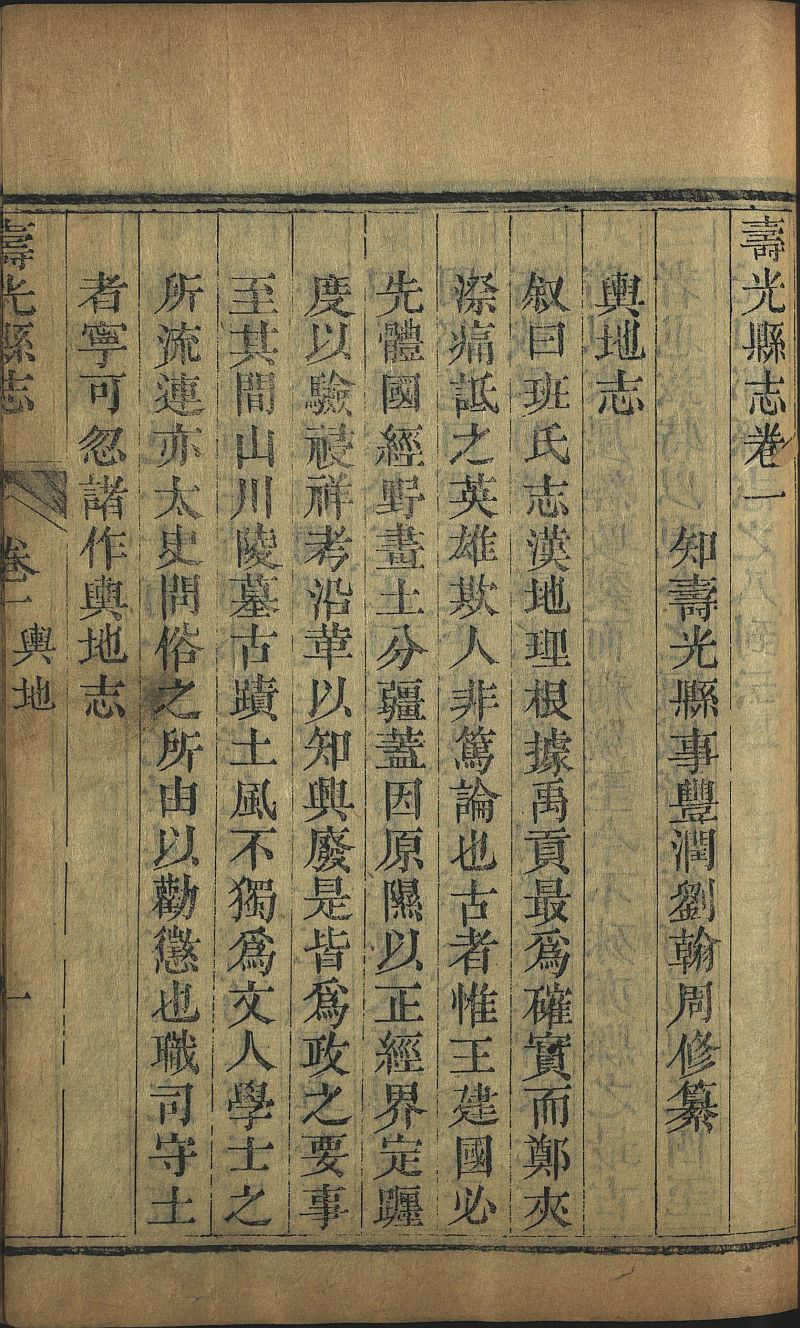 壽光縣志卷一
知壽光縣事豐潤劉翰周修纂
輿地志
叙曰班氏志漢地理根據禹貢最爲確實而鄭夾
漈痛詆之英雄欺人非篤論也古者惟王建國必
先體國經野畫土分疆蓋因原隰以正經界定躔
度以驗祲祥考沿革以知興廢是皆爲政之要事
至其間山川陵墓古蹟土風不獨爲文人學士之
所流連亦太史問俗之所由以勸懲也職司守土
者寧可忽諸作輿地志
壽光縣志
卷一
輿地
一